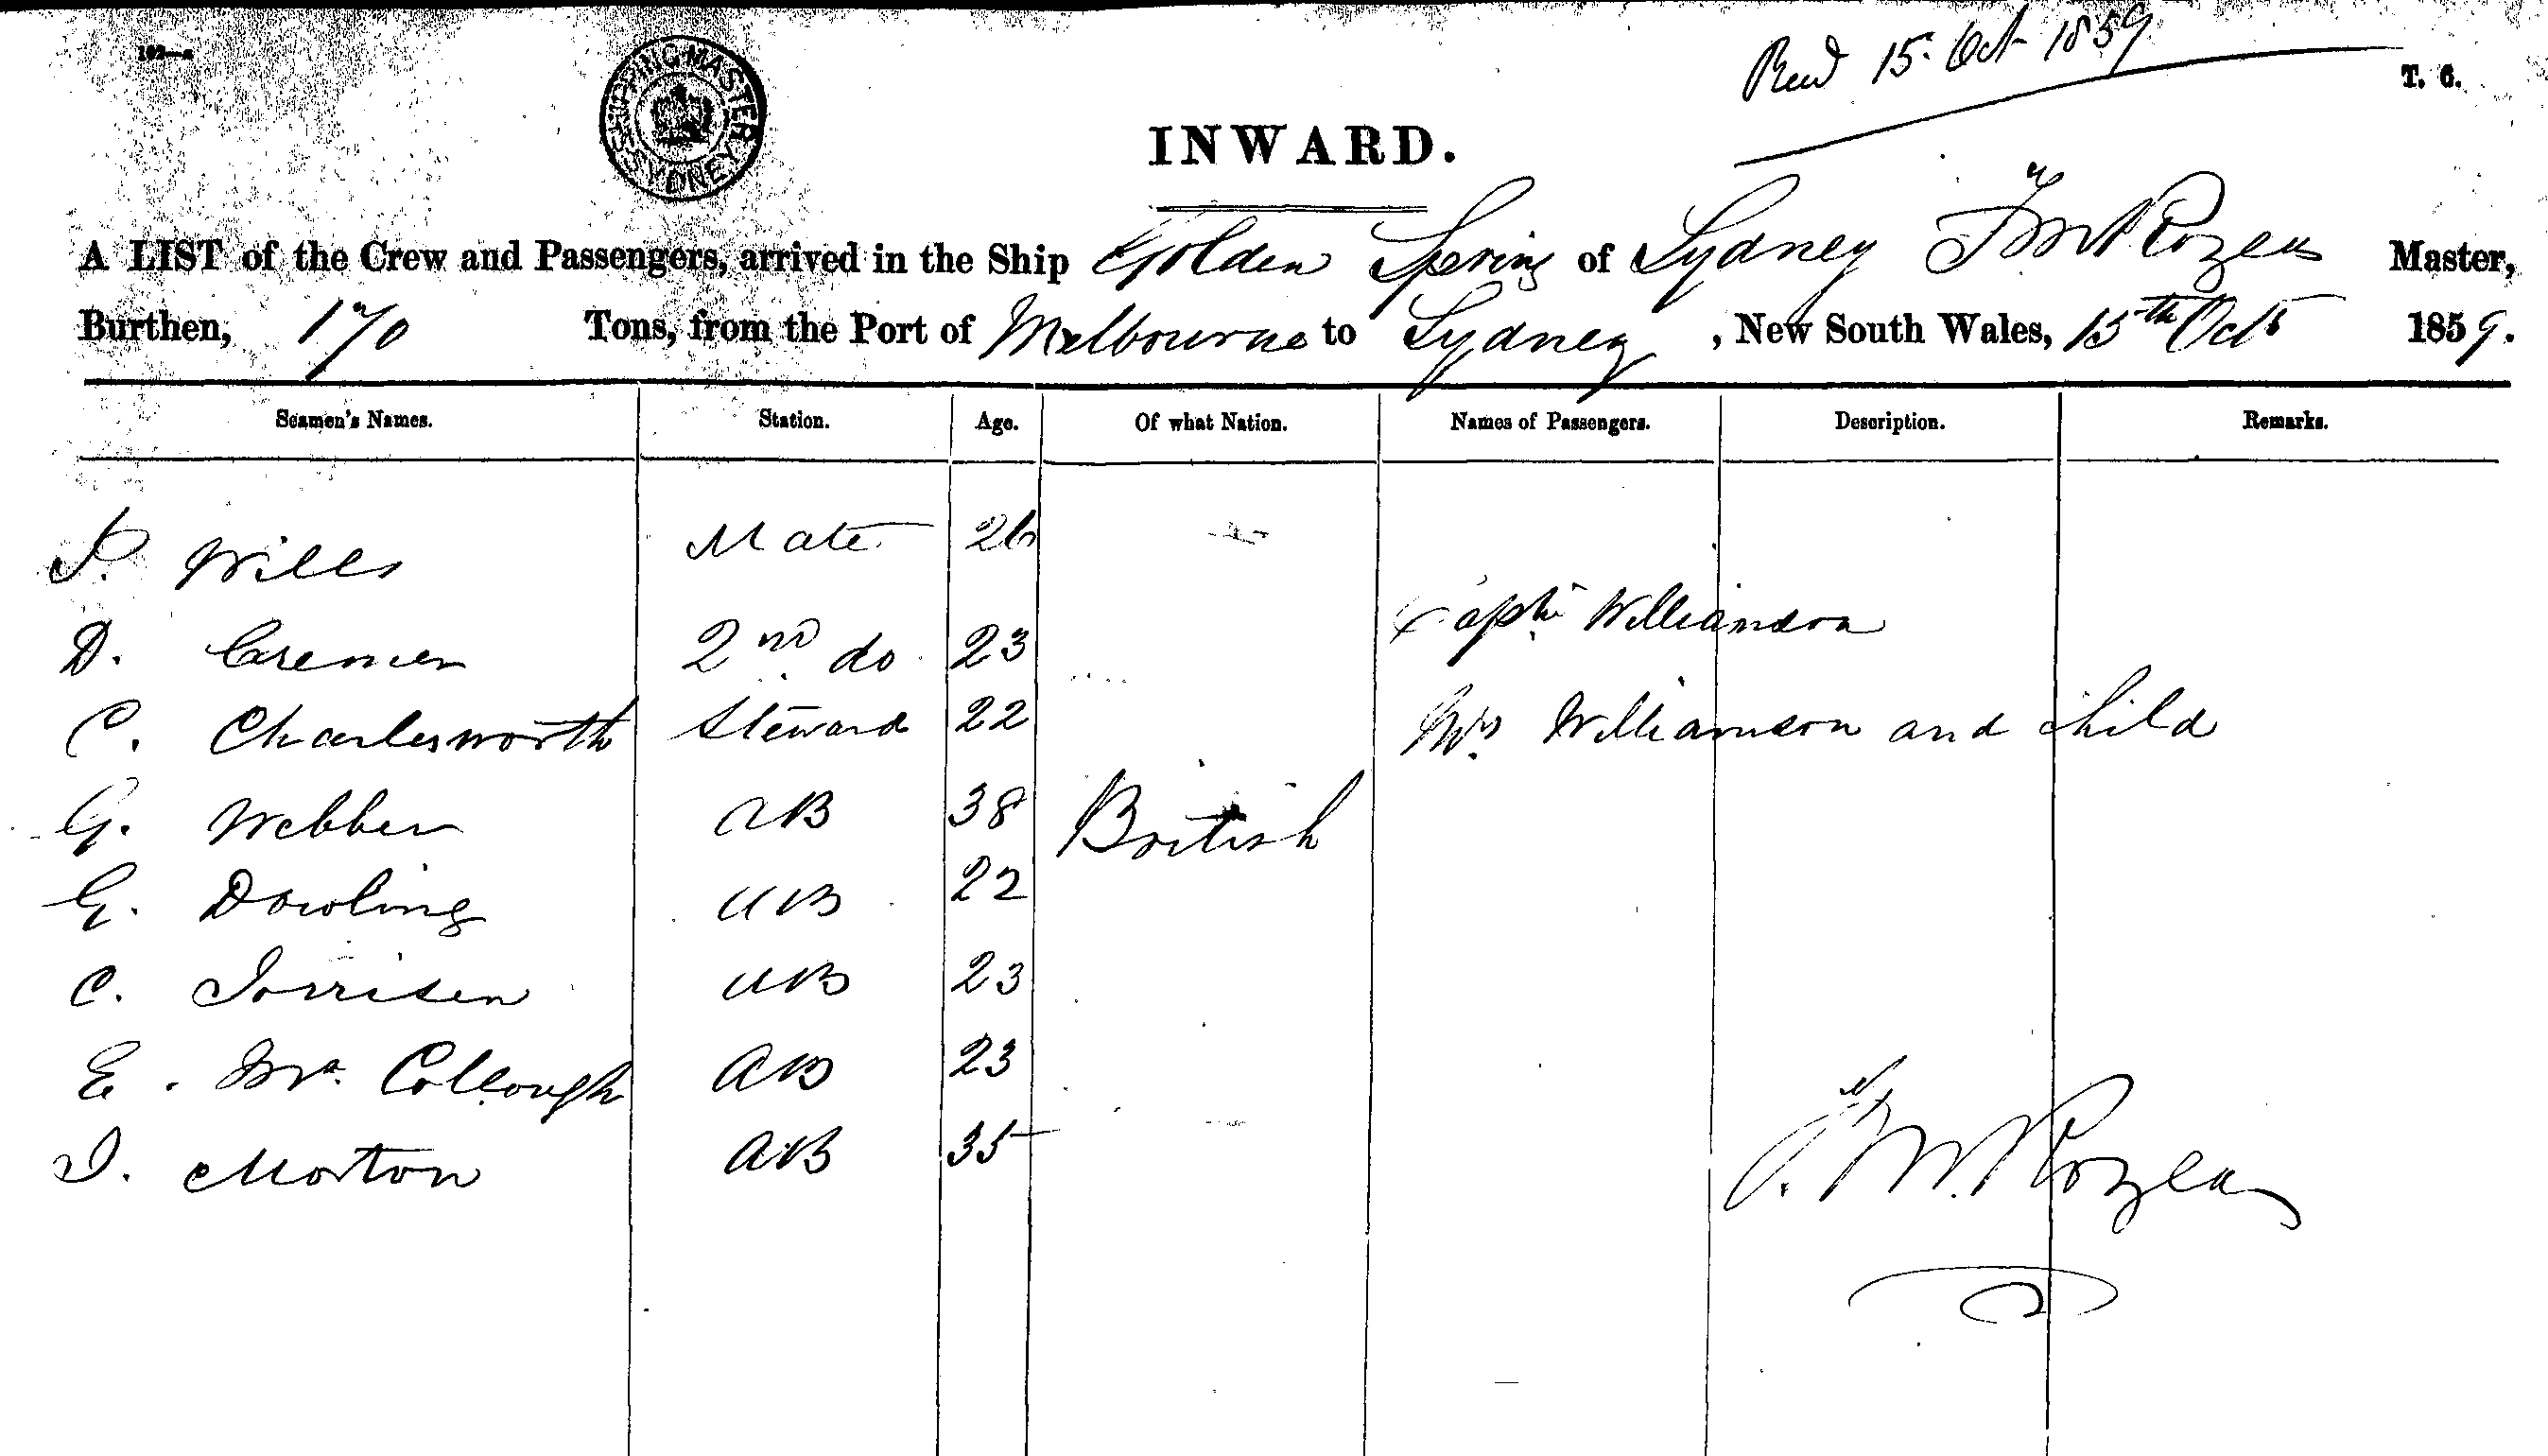 Recd 15 Oct 1859
T. C.
SHIPPING MASTER SYDNEY
INWARD.
A LIST of the Crew and Passengers, arrived in the Ship Golden Spring of Sydney Rozea Master,
Burthen, 170 Tons, from the Port of Melbourne to Sydney, New South Wales, 15th Oct 1859.
Seamen's Names. Station. Age. Of what Nation. Names of Passengers. Description. Remarks.
Wills Mate 26
Captn Williamson
D. Cremer 2nd do 23
C. Charlesworth Steward 22 Mrs Williamson and child
G. Webber AB 38 British
G. Dowling AB 22
C. Jorrisen AB 23
E. Mc Collough AB 23
J. Morton AB 35
Rozea